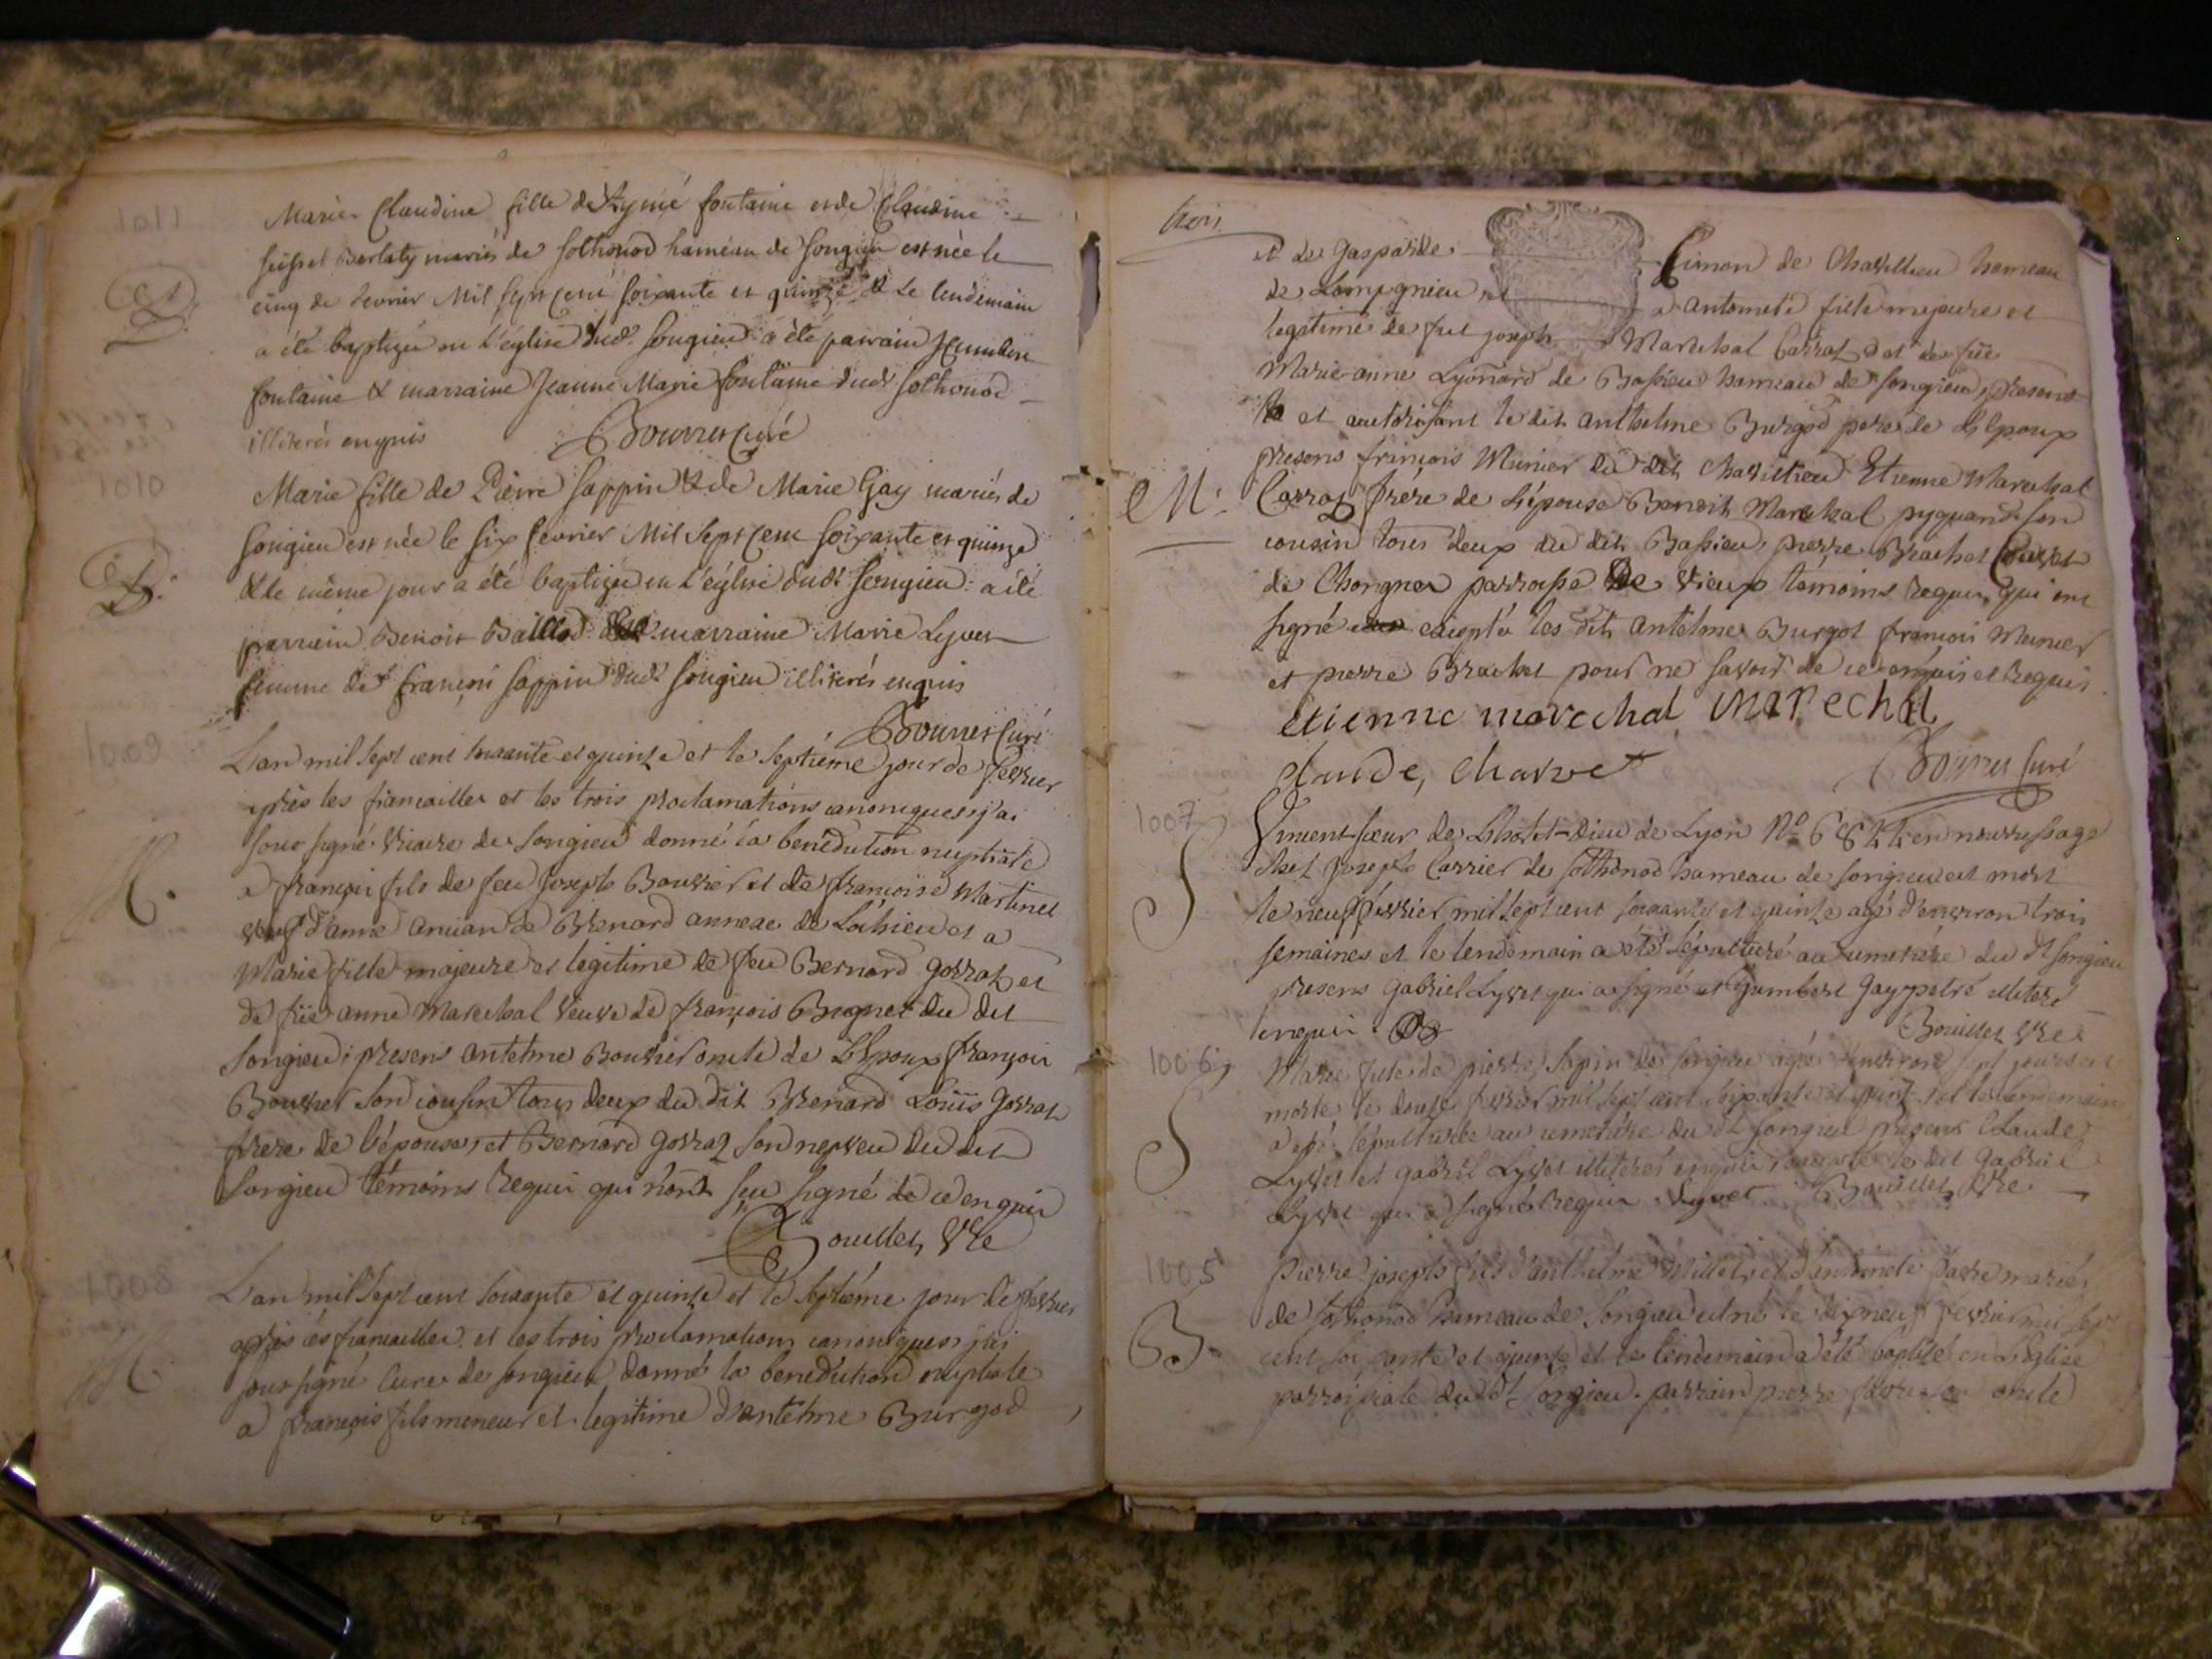 1011
Marie Claudine fille de Aymé fontaine et de Claudine
seissel Berlaty mariés de sothonod hameau de songieu est née le
cinq de fevrier Mil sept cent soixante et quinze & le lendemain
B.
a été baptizée en l'église dudt songieu a été parrain humbert
fontaine & marraine Jeanne Marie fontaine dudt sothonod
illiterés enquis Bourrer Curé
1010
Marie fille de Pierre sappin & de Marie Gay mariés de
songieu est née le six fevrier Mil sept cent soixante et quinze
B.
& le même jour a été baptizée en l'église dudt songieu a été
parrain Benoit Baillod marraine Marie Lyvet
femme de françois sappin dudt songieu illiterés enquis
Bourrer Curé
1009
L'an mil sept cent soixante et quinze et le septiéme jour de fevrier
après les fiancailles et les trois proclamations canoniques j'ai
sous signé vicaire de songieu donné la benédiction nuptiale
M.
a françois fils de feu joseph Bouvier et de françoise Martinet
veuf d'anne de Brenard annexe de et a
Marie fille majeure et legitime de feu Bernard gorraz et
de füe anne Marechal veuve de françois Bugnet du dit
songieu; presens antelme Bouvier oncle de L'Epoux françois
Bouvier son cousin tous deux du dit Brenard Loüis gorraz
frere de l'épouse, et Bernard gorraz son nepveu du dit
songieu témoins requis qui n'ont sçu signé de ce enquis
Bouillet Vre
1008
L'an mil sept cent soixante et quinze et le septiéme jour de fevrier
après les fiancailles et les trois proclamations canoniques j'ai
M
sous signé Curé de songieu donné la benédiction nuptiale
a françois fils mineur et legitime d'antelme Burgod
trois
et de gasparde Simon de Chavillieu hameau
de Lompgnieu et a antoinete fille majeure et
legitime de fut joseph Marechal Carraz et de füe
Marie anne Lyonard de Bassieu hameau de songieu, presens
et autorisant le dit anthelme Burgod pere de L'Epoux
presens françois Munier du dit Chavillieu Etienne Marechal
M.
Carraz frére de L'épouse Benoit Marechal pyquand son
cousin tous deux du dit Bassieu, pierre Brachet
de Chongnes parroisse De vieux témoins requis, qui ont
signé excepté les dits antelme Burgot françois Munier
et pierre Brachet pour ne savoir de ce enquis et requis.
étienne marechal MARechal
claude, charvet Bourrer Curé
1007
Vincent sœur de L'hotel-dieu de Lyon No en nourrissage
chez joseph Carrier de sothonod hameau de songieu est mort
S
le neuf fevrier mil sept cent soixante et quinze agé d'environ trois
semaines et le lendemain a été sépulturé au cimetiére du dt songieu
presens gabriel Lyvet qui a signé et humbert gay illiteré
enquis. Bouillet Vre
1006
Marie fille de pierre sapin de songieu agée d'environ sept jours est
morte le douze fevrier mil sept cent soixante et quinze et le lendemain
S
a été sépulturée au cimetiére du dt songieu presens Claude
Lyvet et gabriel Lyvet illiterés enquis excepté le dit gabriel
Lyvet qui a signé requis. Lyvet Bouillet Vre
1005
pierre joseph fils d'anthelme Millet et d'antoinete mariés
de sothonod hameau de songieu est né le dixneuf fevrier mil sept
B.
cent soixante et quinze et le lendemain a été baptisé en L'Eglise
parroissiale du dt songieu. parrain pierre son oncle